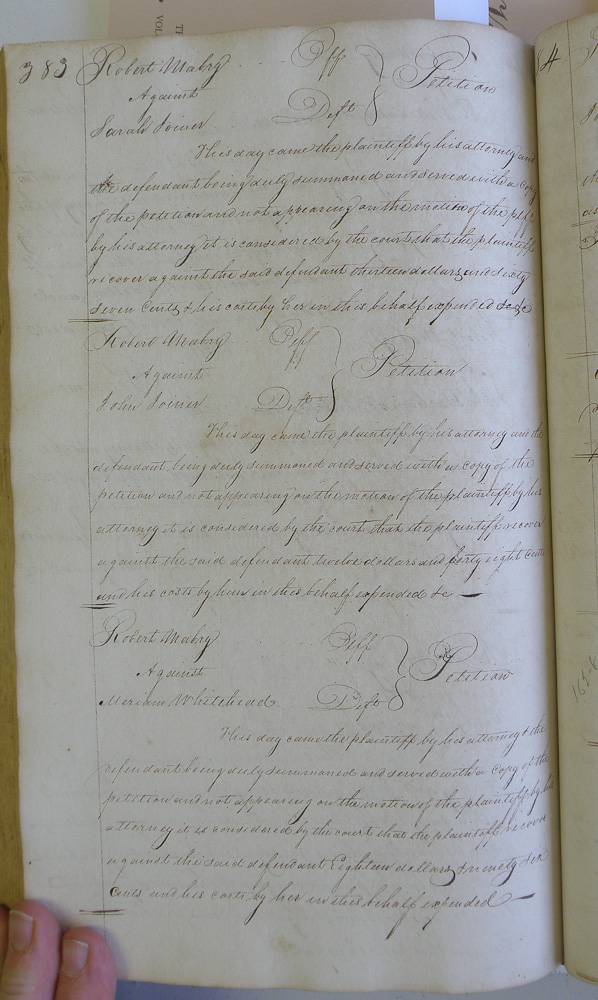 383 Robert Mabry Plff
Against Petition
Sarah Joiner Deft
This day came the plaintiff by his attorney and
the defendant being duly summoned and served with a copy
of the petition and not appearing on the motion of the plff
by his attorney it is considered by the court that the plaintiff
recover against the said defendant thirteen dollars and sixty
seven Cents & his costs by her in this behalf expended &c
Robert Mabry Plff
Against Petition
John Joiner Deft
This day came the plaintiff by his attorney and the
defendant being duly summoned and served with a copy of the
petition and not appearing on the motion of the plaintiff by his
attorney it is considered by the court that the plaintiff recover
against the said defendant twelve dollars and forty eight Cents
and his costs by him in this behalf expended &c
Robert Mabry Plff
Against Petition
Meriam Whitehead Deft
This day came the plaintiff by his attorney & the
defendant being duly summoned and served with a Copy of the
petition and not appearing on the motion of the plaintiff by his
attorney it is considered by the court that the plaintiff recover
against the said defendant Eighteen dollars & ninety six
Cents and his costs by her in this behalf expended